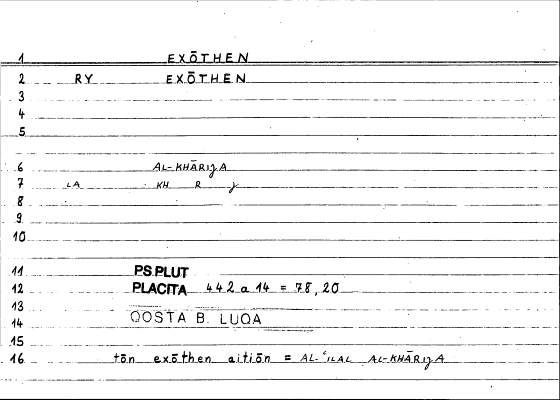 1 EXŌTHEN
2 RY EXŌTHEN
3
4
5
6 AL-KHĀRIJA
7 LA KH R J
8
9
10
11 PS PLUT
12 PLACITA 442 a 14 = 78,20
13
14 QOSTA B. LUQA
15
16 tōn exōthen aitiōn = AL-ʿILAL AL-KHĀRIJA